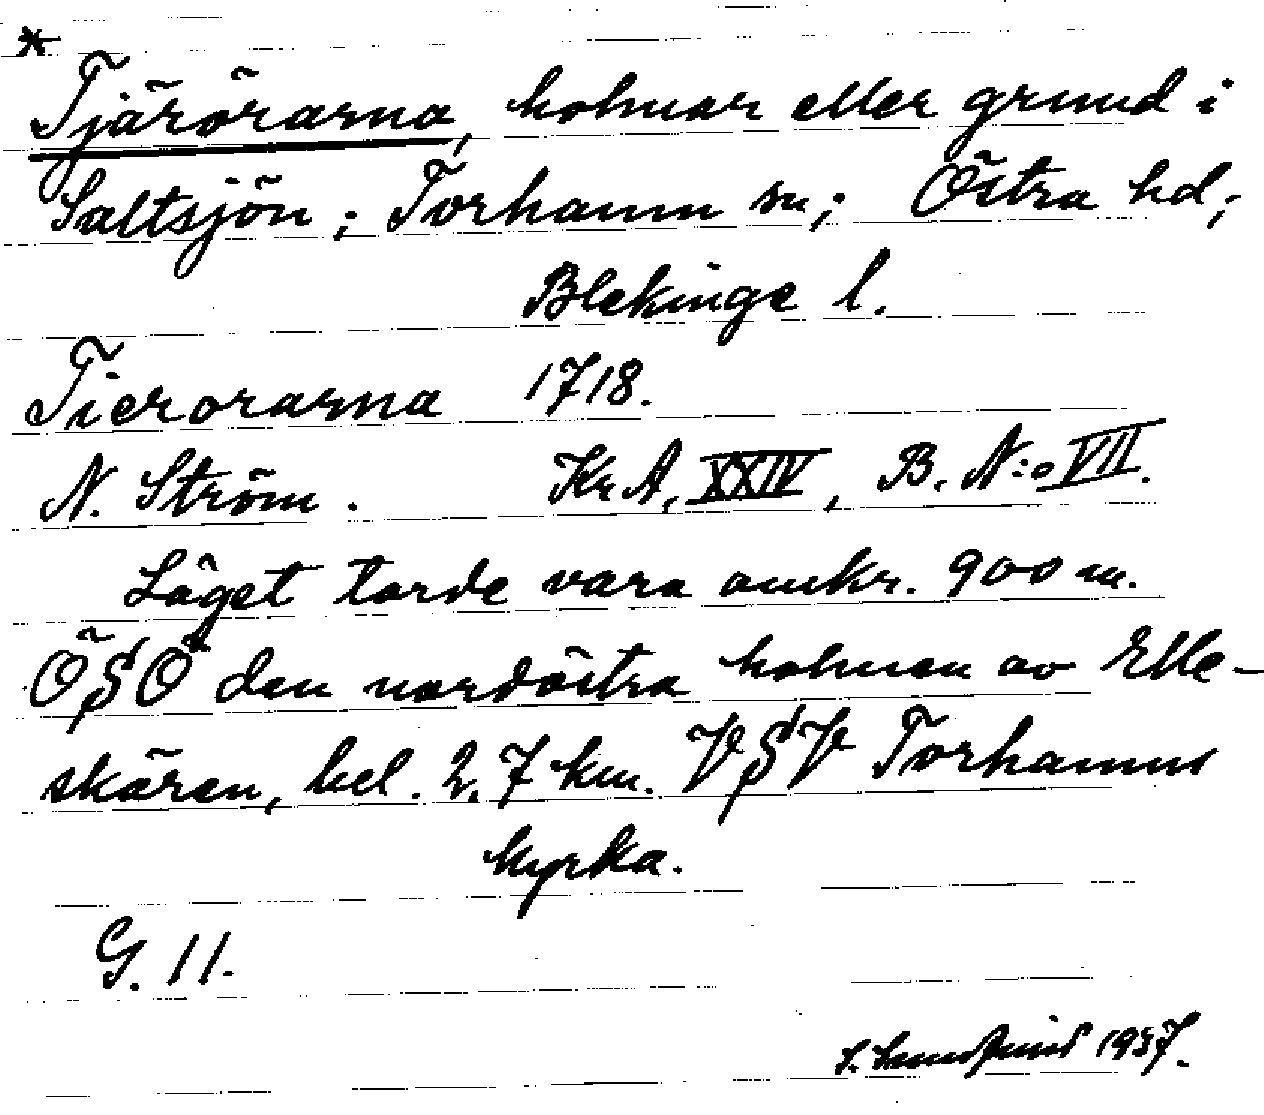 *
Tjärörarna, holmar eller grund i
Saltsjön; Torhamn sn; Östra hd;
Blekinge l.
Tierorarna 1718.
N. Ström. KrA, XXIV, B. N:o VII.
Läget torde vara omkr. 900 m.
ÖSÖ den nordöstra holmen av Elle-
skären, bel. 2.7 km. VSV Torhamns
kyrka.
G. 11.
1937.